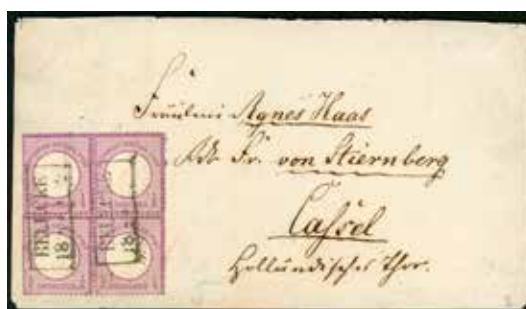 Fräulein Agnes Haas
Adr. Fr. von Stiernberg
Cassel
Holländisches Thor.